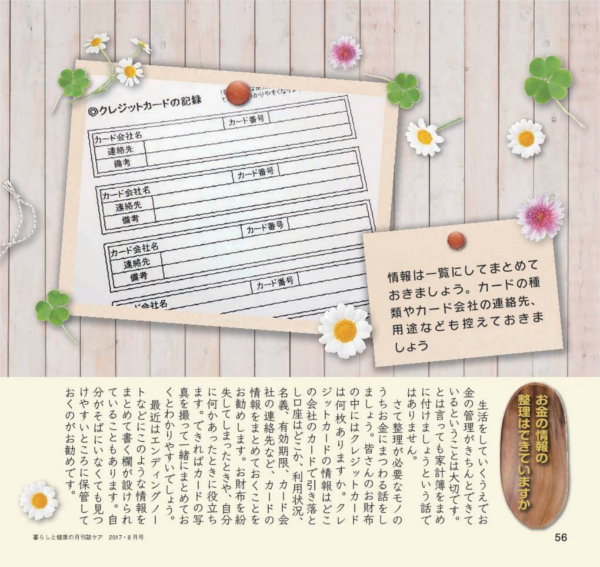 ◎クレジットカードの記録
カード会社名 カード番号
連絡先
備考
カード会社名 カード番号
連絡先
備考
カード会社名 カード番号
連絡先
備考
カード会社名 カード番号
情報は一覧にしてまとめて
おきましょう。カードの種
類やカード会社の連絡先、
用途なども控えておきま
しょう
お金の情報の
整理はできていますか
生活をしていくうえでお
金の管理がきちんとできて
いるということは大切です。
とは言っても家計簿をまめ
に付けましょうという話で
はありません。
さて整理が必要なモノの
うちお金にまつわる話をし
ましょう。皆さんのお財布
の中にはクレジットカード
は何枚ありますか。クレ
ジットカードの情報はどこ
の会社のカードで引き落と
し口座はどこか、利用状況、
名義、有効期限、カード会
社の連絡先など、カードの
情報をまとめておくことを
お勧めします。お財布を紛
失してしまったときや、自分
に何かあったときに役立ち
ます。できればカードの写
真を撮って一緒にまとめてお
くとわかりやすいでしょう。
最近はエンディングノー
トなどにこのような情報を
まとめて書く欄が設けられ
ていることもあります。自
分がそばにいなくても見つ
けやすいところに保管して
おくのがお勧めです。
暮らしと健康の月刊誌ケア 2017・8月号
56